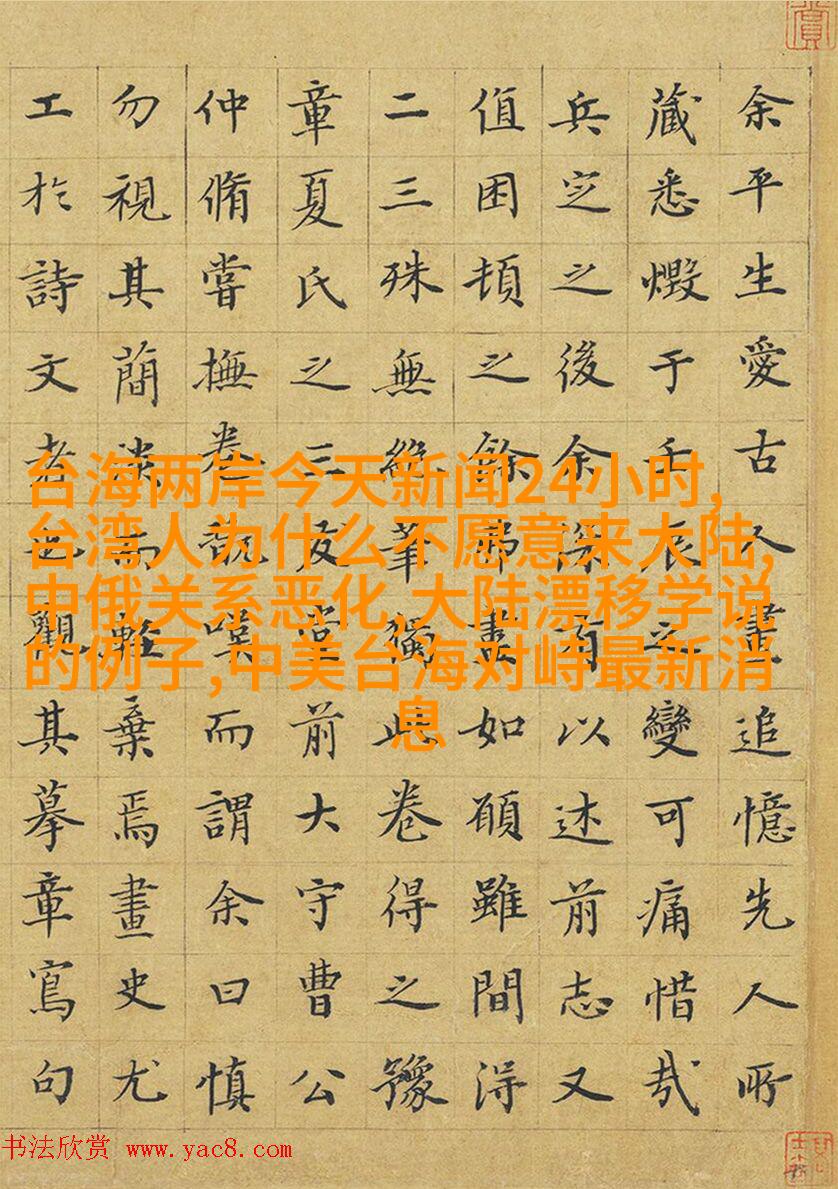 余平生愛古人畫追憶先人所
藏悉燬于壬辰之變可痛惜哉
兵定之後余深有以述前志又
值困頓之餘弗畫如願雖間得
二三殊無絶筆獨此卷得之豫
章夏氏之三友堂前大守曹公
仲脩嘗撫卷嘆而謂余曰慎
勿視其簡淡而棄焉畫史尤
工於詩文者也觀其摹章寫句
台海两岸今天新闻24小时,
台湾人为什么不愿意来大陆,
中俄关系恶化,大陆漂移学说
的例子,中美台海对峙最新消
息
书法欣赏 www.yac8.com